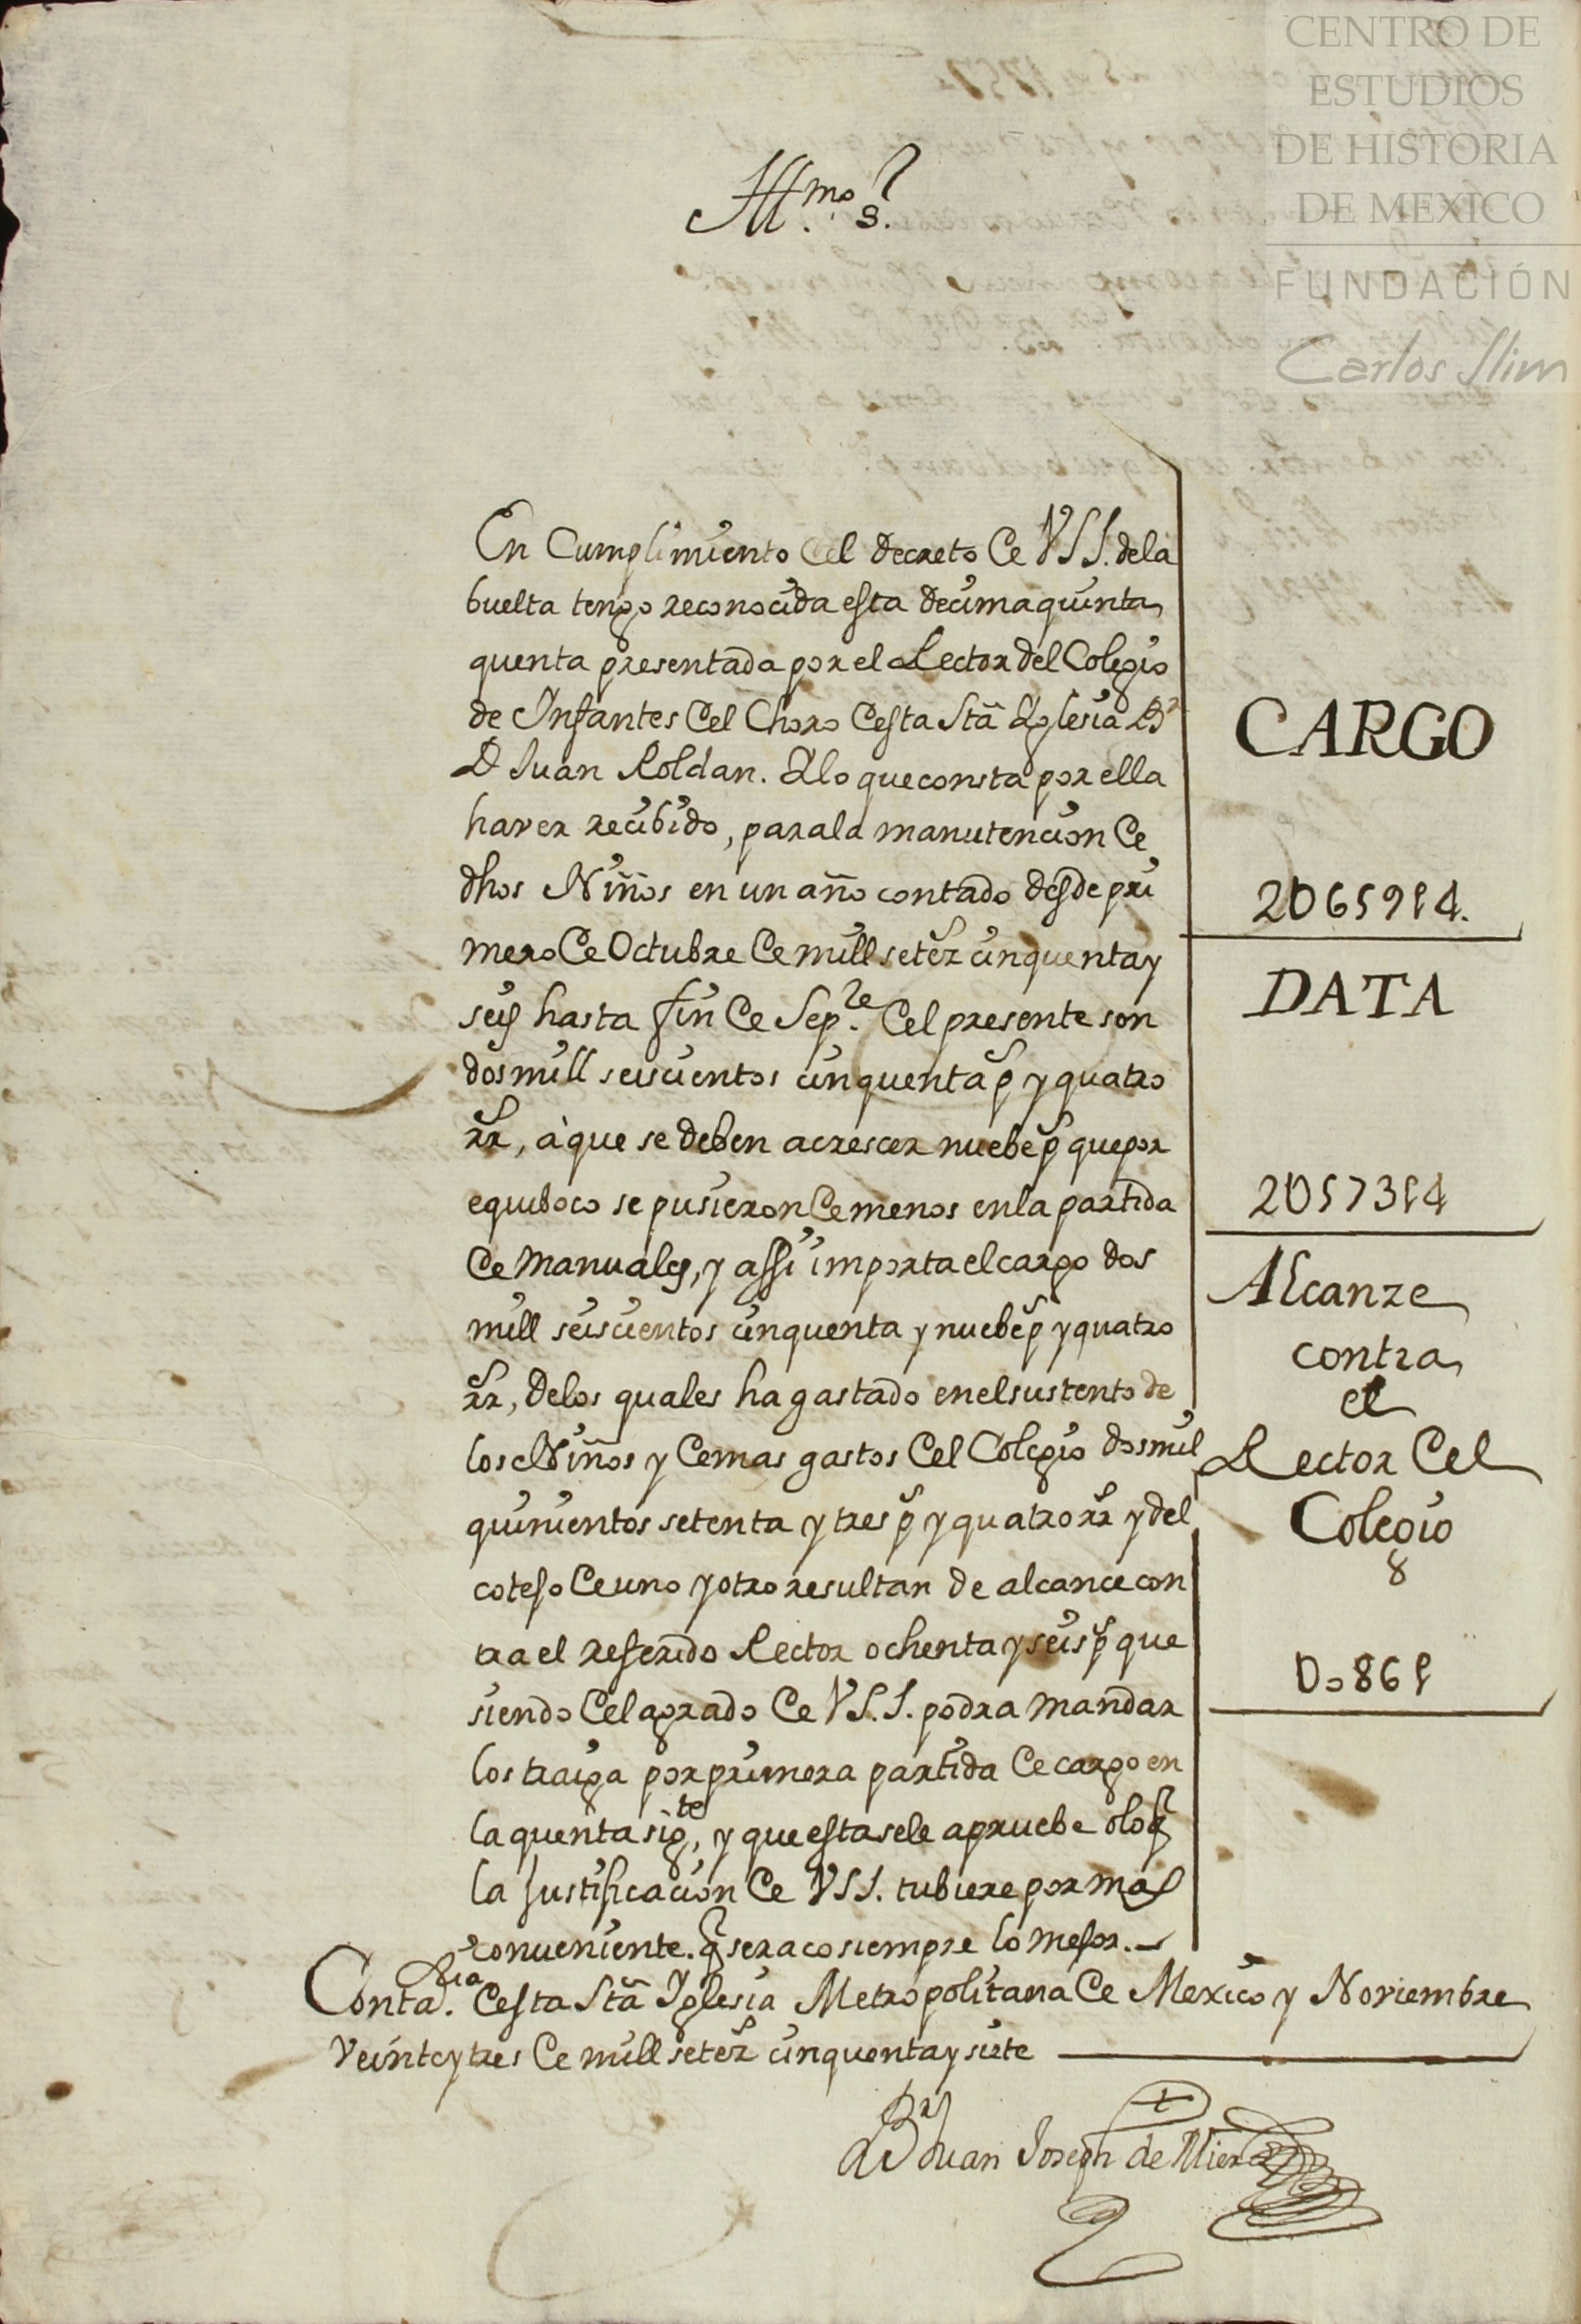 CENTRO DE
ESTUDIOS
DE HISTORIA
DE MEXICO
FUNDACIÓN
Carlos Slim
Illmo. Sr.
En Cumplimiento del decreto de VSI. dela
buelta tengo reconocida esta decima quinta
quenta presentada por el Rector del Colegio
de Infantes del Choro desta Stã Yglesia Br
D Juan Roldan. I lo que consta por ella
haver recibido, para la manutencion de
dhos Niños en un año contado desde pri
mero de Octubre de mill setezs cinquenta y
seis hasta fin de Sepre. del presente son
dos mill seiscientos cinquenta ps y quatro
rrs, à que se deben acrescer nuebe ps que por
equiboco se pusieron de menos en la partida
de Manuales, y assi importa el cargo dos
mill seiscientos cinquenta y nuebe ps y quatro
rrs, de los quales ha gastado en el sustento de
los Niños y demas gastos del Colegio dos mil
quinientos setenta y tres ps y quatro rrs y del
cotejo de uno y otro resultan de alcance con
tra el referido Rector ochenta y seis ps que
siendo del agrado de VS.I. podra mandar
los traiga por primera partida de cargo en
la quenta sigte, y que esta se le apruebe ò lo q
la justificacion de VSI. tubiere por mas
conveniente. q sera como siempre lo mejor.
Contaria. desta Stã Yglesia Metropolitana de Mexico y Noviembre
veinte y tres de mill setezs cinquenta y siete
Br Juan Joseph de Mier
CARGO
2065914.
DATA
2057314
Alcanze
contra
el
Rector del
Colegio
Do861